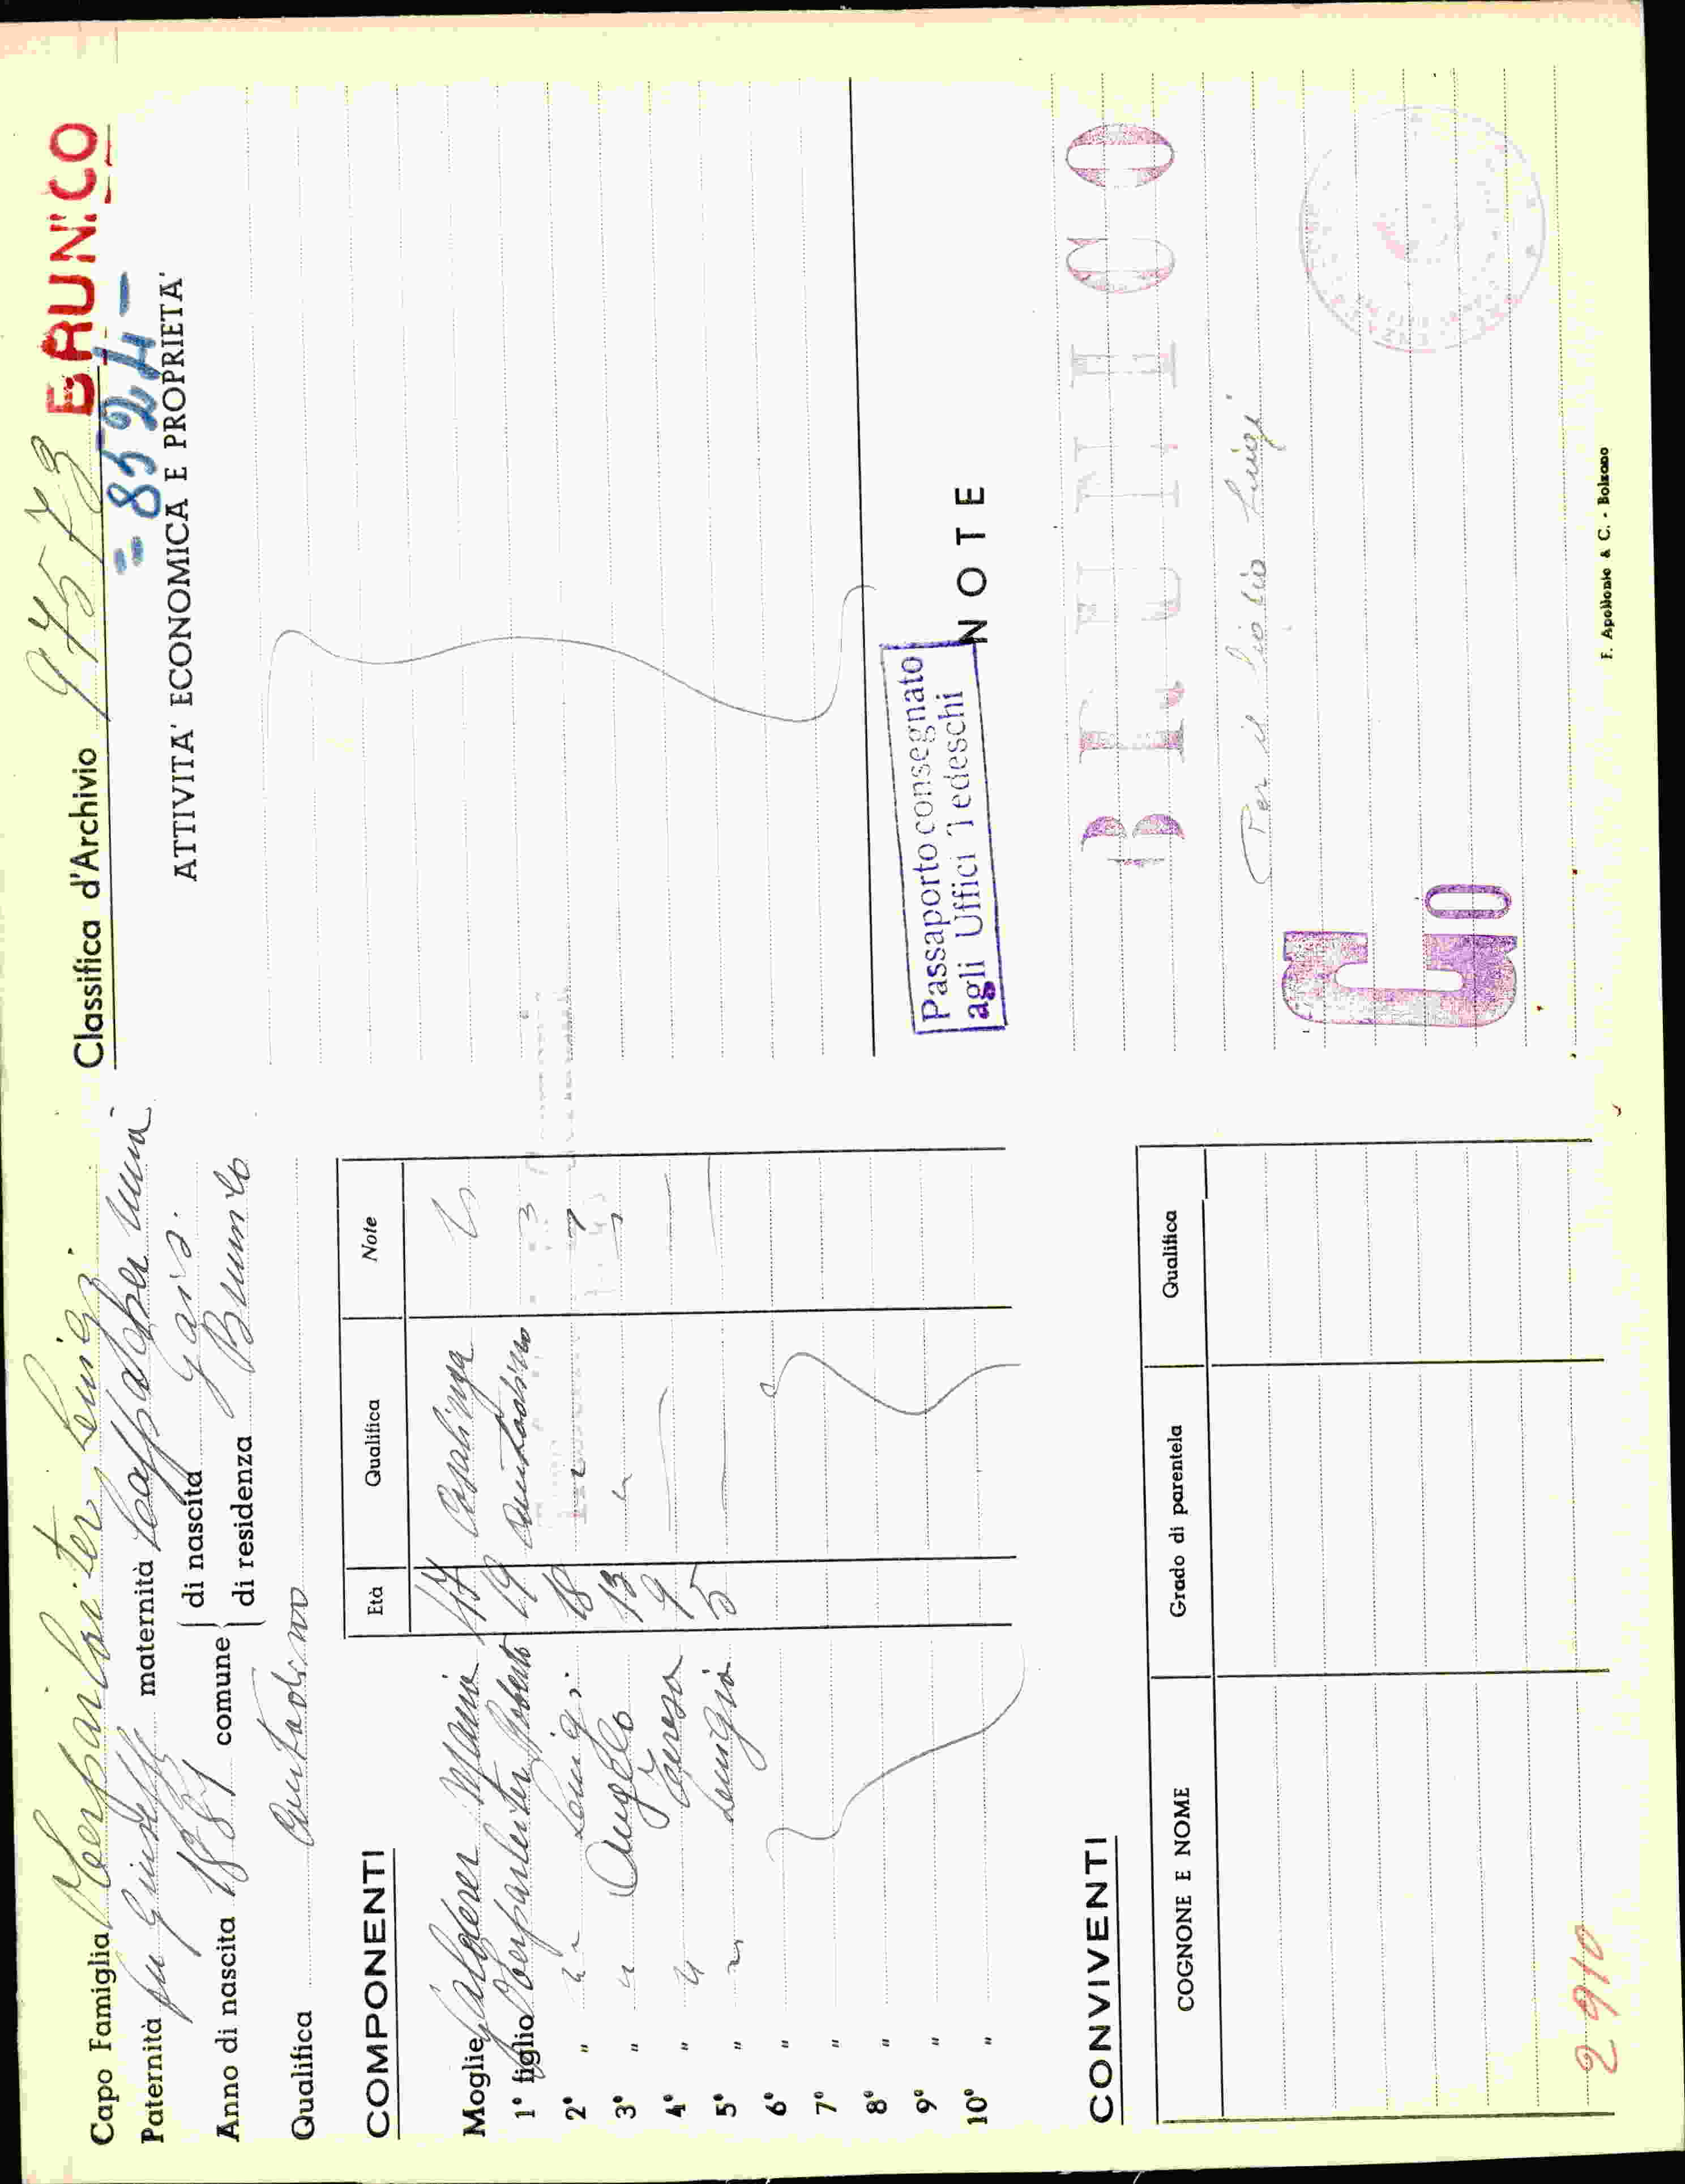 Capo Famiglia Oberparleiter Luigi
Paternità fu Giuseppe maternità Anna
Anno di nascita 1887 comune di nascita Gais
di residenza Brunico
Qualifica Contadino
COMPONENTI
Età Qualifica Note
Moglie Maria 47 Casalinga
1° figlio Oberparleiter Roberto 19 Contadino
2° " " Luigi 18 "
3° " " Angelo 13 "
4° " " Teresa 9
5° " " Luigia 5
6° "
7° "
8° "
9° "
10° "
CONVIVENTI
COGNONE E NOME Grado di parentela Qualifica
2910
Classifica d'Archivio 97573 BRUNICO
= 8524 -
ATTIVITA' ECONOMICA E PROPRIETA'
Passaporto consegnato
agli Uffici Tedeschi
NOTE
Per il figlio Luigi
F. Apollonio & C. - Bolzano